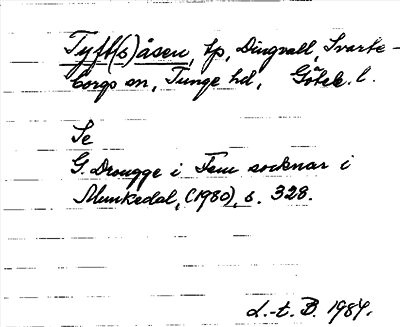 Tyft(s)åsen, tp, Dingvall, Svarte-
borgs sn, Tunge hd, Göteb. l.
Se
G. Drougge i Fem socknar i
Munkedal, (1980), s. 328.
L.-t. B. 1984.